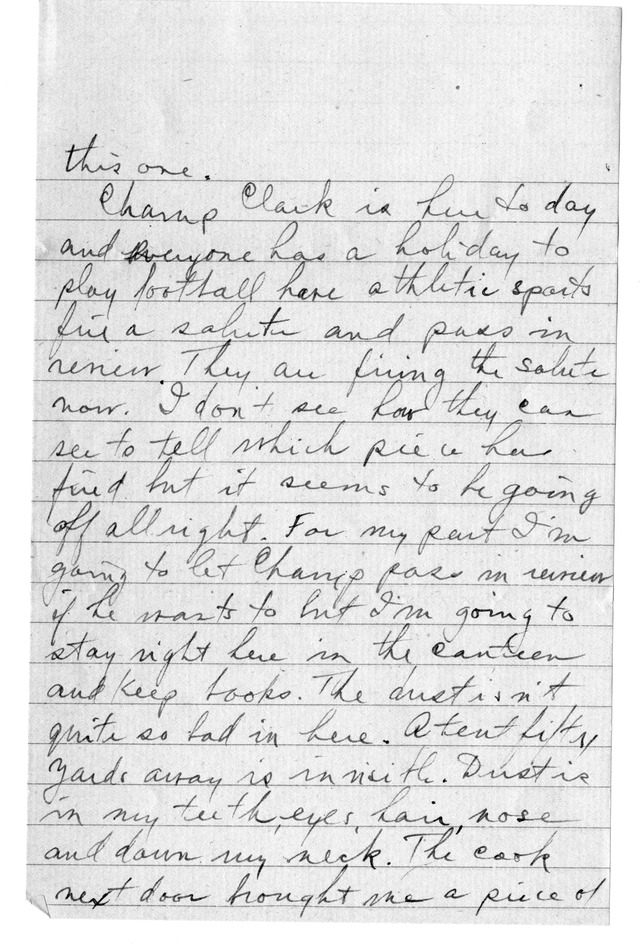 this one.
Champ Clark is here to day
and everyone has a holiday to
play football have athletic sports
fire a salute and pass in
review. They are firing the salute
now. I don't see how they can
see to tell which piece has
fired but it seems to be going
off all right. For my part I'm
going to let Champ pass in review
if he wants to but I'm going to
stay right here in the canteen
and keep books. The dust isn't
quite so bad in here. A tent fifty
yards away is invisible. Dust is
in my teeth, eyes, hair, nose
and down my neck. The cook
next door brought me a piece of